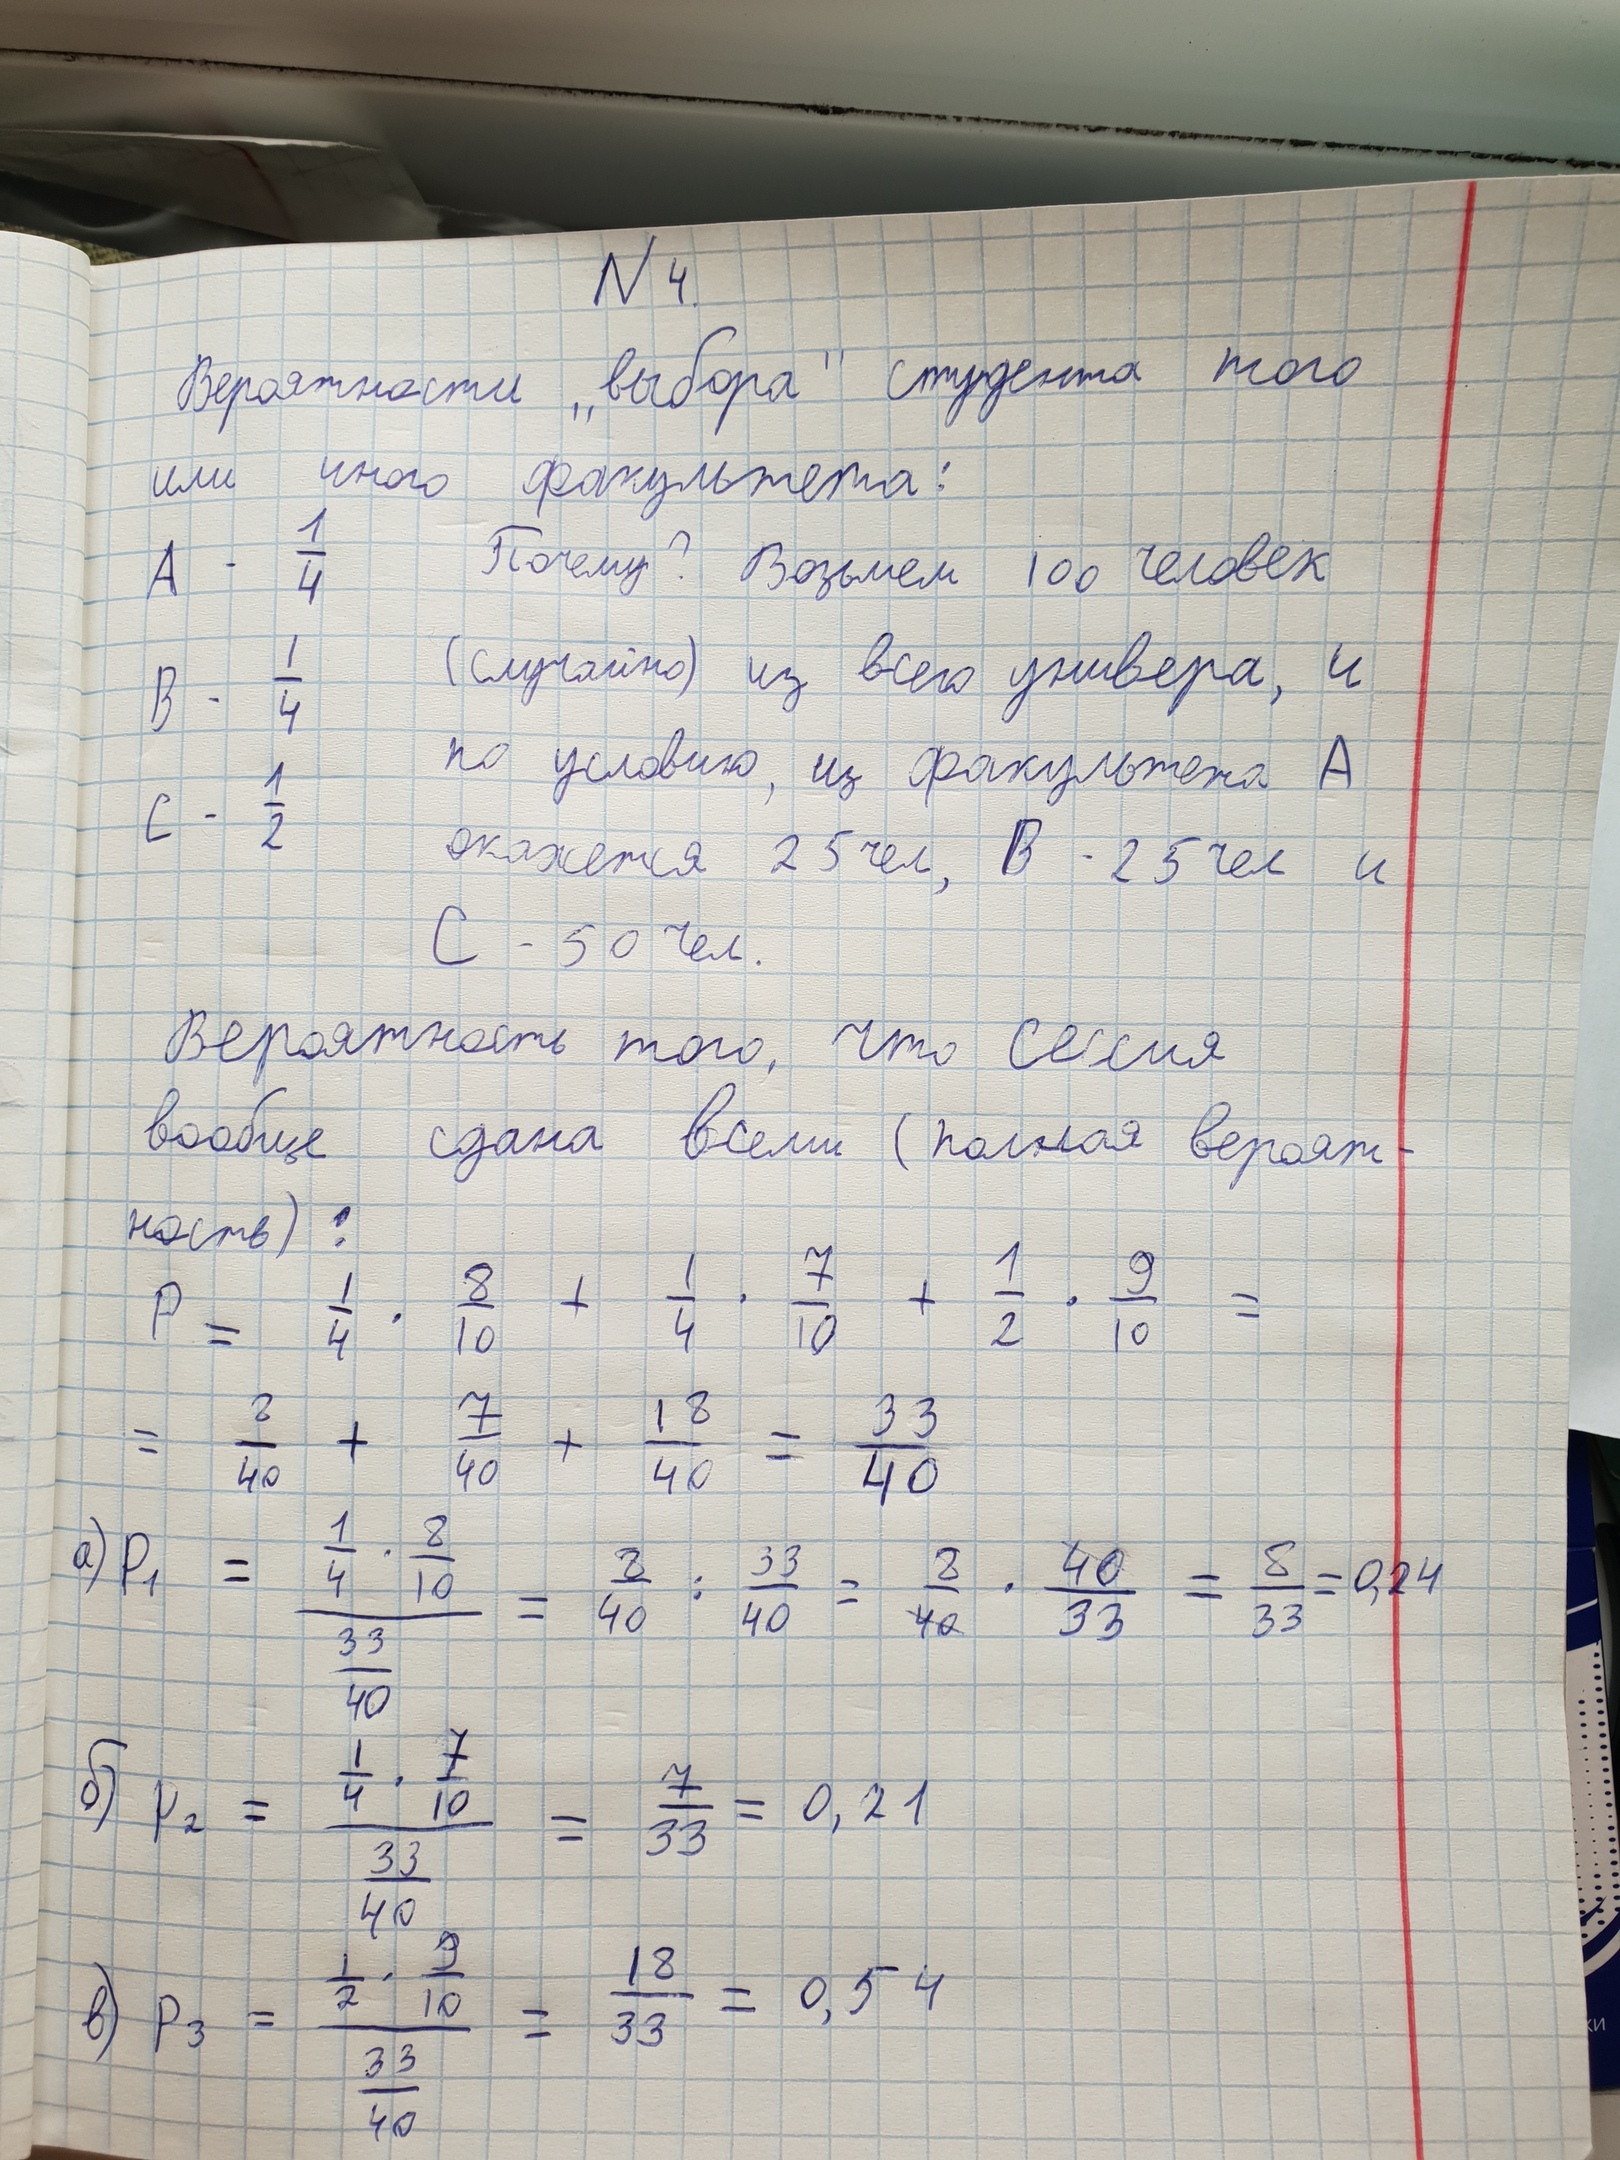 N 4.
Вероятности „выбора" студента того
или иного факультета:
A - 1/4 Почему? Возьмем 100 человек
B - 1/4 (случайно) из всего универа, и
C - 1/2 по условию, из факультета A
окажется 25 чел, B - 25 чел и
C - 50 чел.
Вероятность того, что сессия
вообще сдана всеми (полная вероят-
ность):
P = 1/4 · 8/10 + 1/4 · 7/10 + 1/2 · 9/10 =
= 8/40 + 7/40 + 18/40 = 33/40
а) P1 = (1/4 · 8/10)/(33/40) = 8/40 : 33/40 = 8/40 · 40/33 = 8/33 = 0,24
б) P2 = (1/4 · 7/10)/(33/40) = 7/33 = 0,21
в) P3 = (1/2 · 9/10)/(33/40) = 18/33 = 0,54
ки